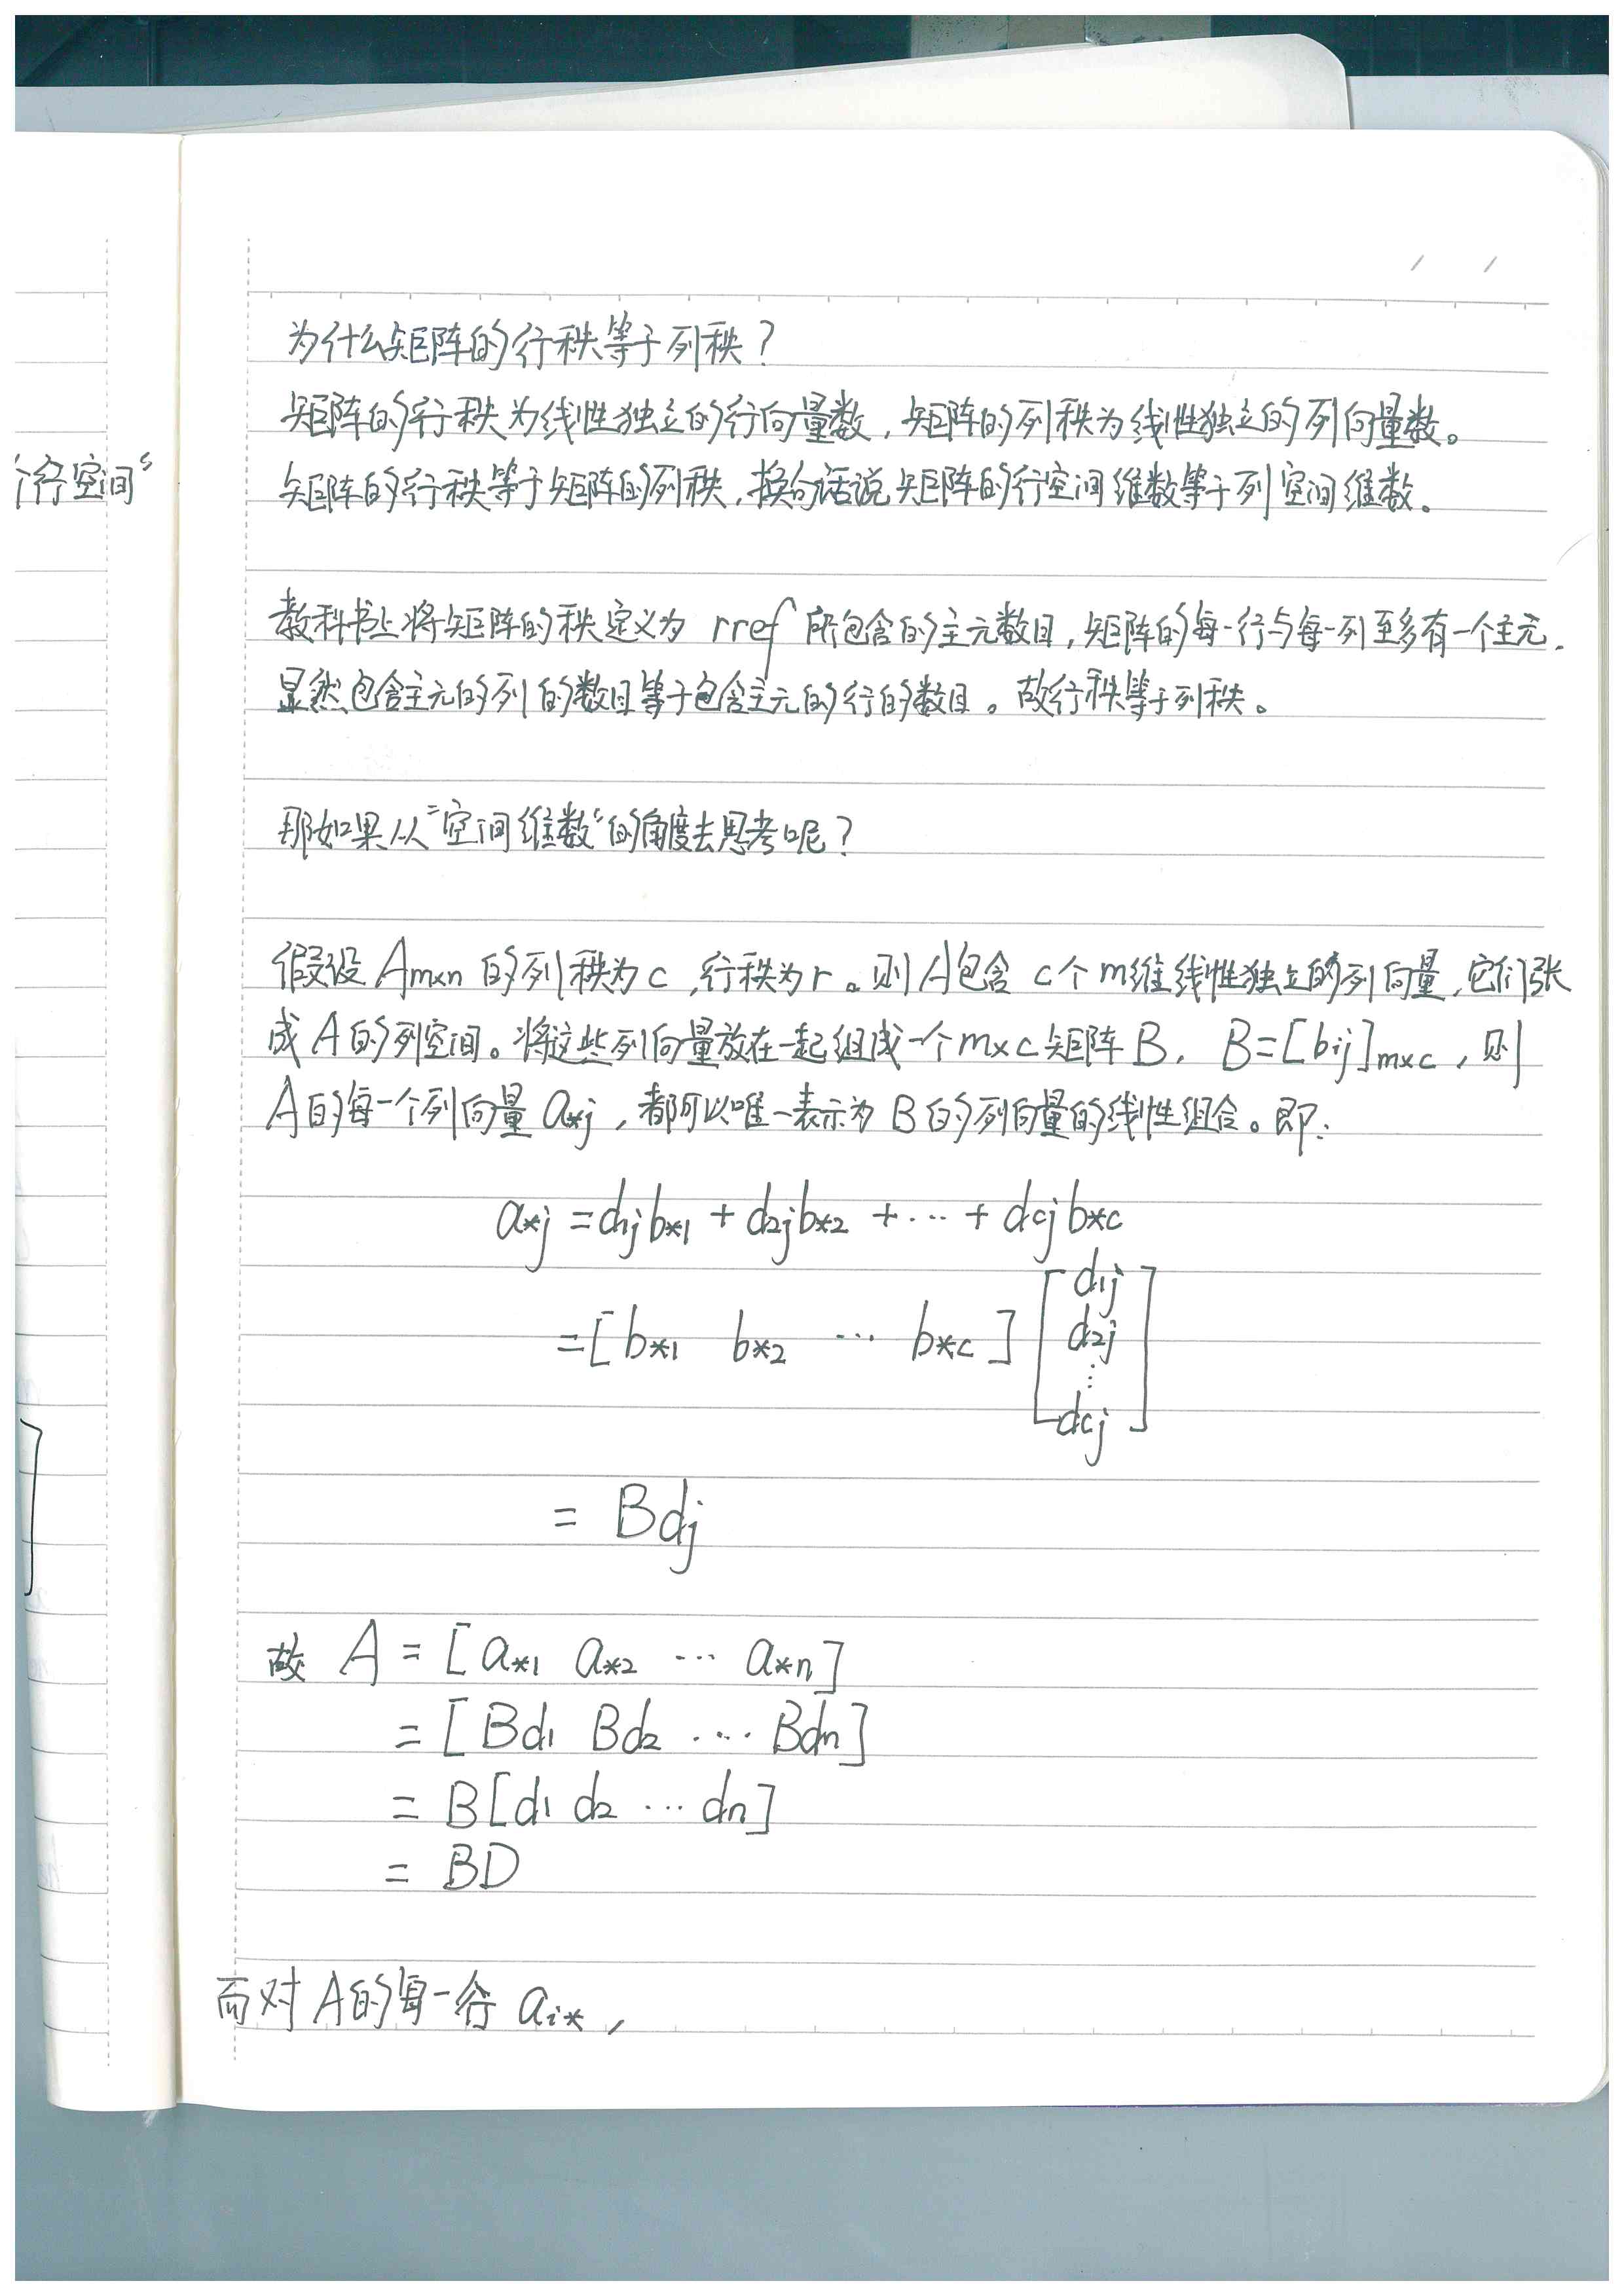 为什么矩阵的行秩等于列秩？
矩阵的行秩为线性独立的行向量数，矩阵的列秩为线性独立的列向量数。
个行空间“
矩阵的行秩等于矩阵的列秩，换句话说矩阵的行空间维数等于列空间维数。
教科书上将矩阵的秩定义为 rref 所包含的主元数目，矩阵的每一行与每一列至多有一个主元.
显然包含主元的列的数目等于包含主元的行的数目。故行秩等于列秩。
那如果从“空间维数“的角度去思考呢？
假设 Am×n 的列秩为 c ，行秩为 r 。则 A 包含 c 个 m 维线性独立的列向量，它们张
成 A 的列空间。将这些列向量放在一起组成一个 m×c 矩阵 B， B=[bij]m×c ，则
A 的每一个列向量 a*j ，都可以唯一表示为 B 的列向量的线性组合。即：
a*j = d1jb*1 + d2jb*2 + ··· + dcjb*c
= [ b*1 b*2 ··· b*c ] [ d1j
d2j
⋮
dcj ]
= Bdj
故 A = [ a*1 a*2 ··· a*n ]
= [ Bd1 Bd2 ··· Bdn ]
= B[ d1 d2 ··· dn ]
= BD
而对 A 的每一行 ai* ，